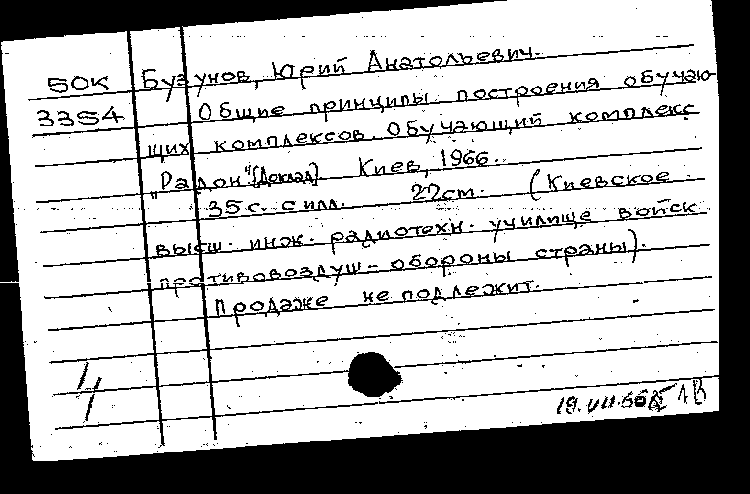 БОК Бузунов, Юрий Анатольевич.
3354 Общие принципы построения обучаю-
щих комплексов. Обучающий комплекс
"Радон" [Доклад] Киев, 1966.
35 с. с илл. 22 см. (Киевское
высш. инж. радиотехн. училище войск
противовоздуш- обороны страны).
Продаже не подлежит.
4
19.VII.66 ЛВ